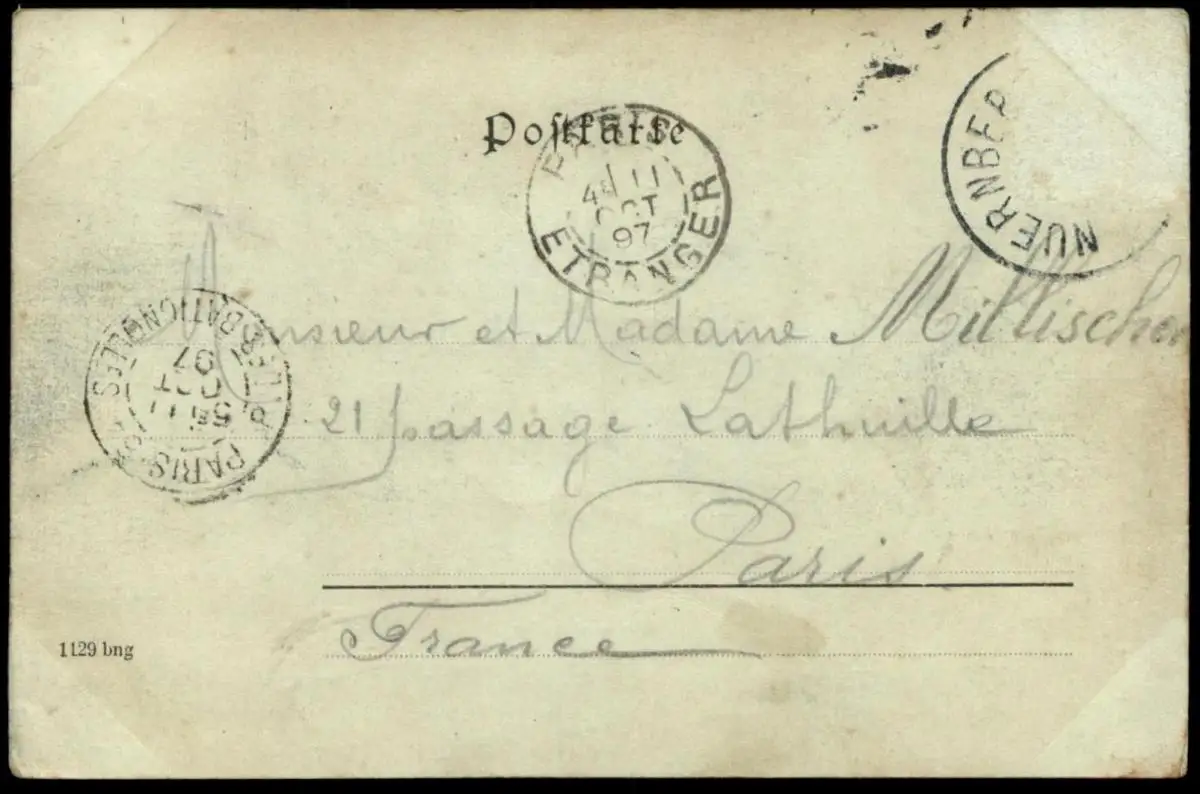 Postkarte
PARIS
4E 11
OCT
97
ETRANGER
NUERNBER
Monsieur et Madame Millischer
21 passage Lathuille
Paris
France
PARIS
5E 11
OCT
97
BATIGNOLLES
1129 bng